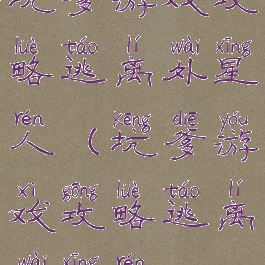 坑爹游戏攻
lüè táo lí wài xīng
略逃离外星
rén kēng diē yóu
人（坑爹游
xì gōng lüè táo lí
戏攻略逃离
wài xīng rén